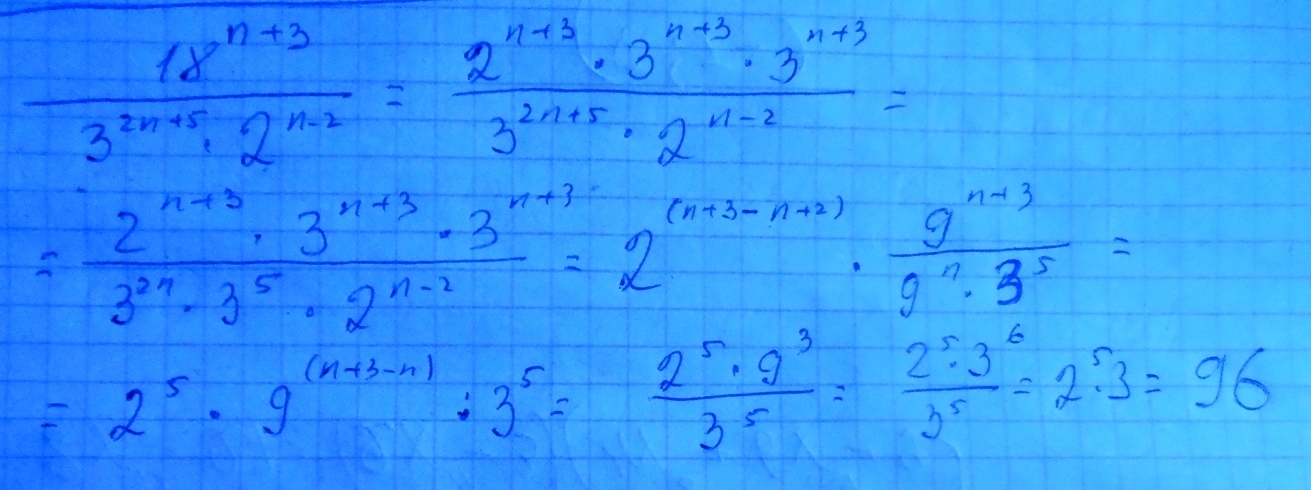 18^{n+3} / (3^{2n+5} · 2^{n-2}) = (2^{n+3} · 3^{n+3} · 3^{n+3}) / (3^{2n+5} · 2^{n-2}) =
= (2^{n+3} · 3^{n+3} · 3^{n+3}) / (3^{2n} · 3^5 · 2^{n-2}) = 2^{(n+3-n+2)} · 9^{n+3} / (9^n · 3^5) =
= 2^5 · 9^{(n+3-n)} : 3^5 = (2^5 · 9^3) / 3^5 = (2^5 · 3^6) / 3^5 = 2^5 · 3 = 96